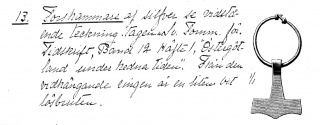 13. Torshammare af silfver se vidstå-
ende teckning. Tagen ur Fornm. för.
Tidskrift, Band 12 Häfte 1, "Östergöt-
land under hedna tiden". Från den
vidhängande ringen är en liten bit
lösbruten.